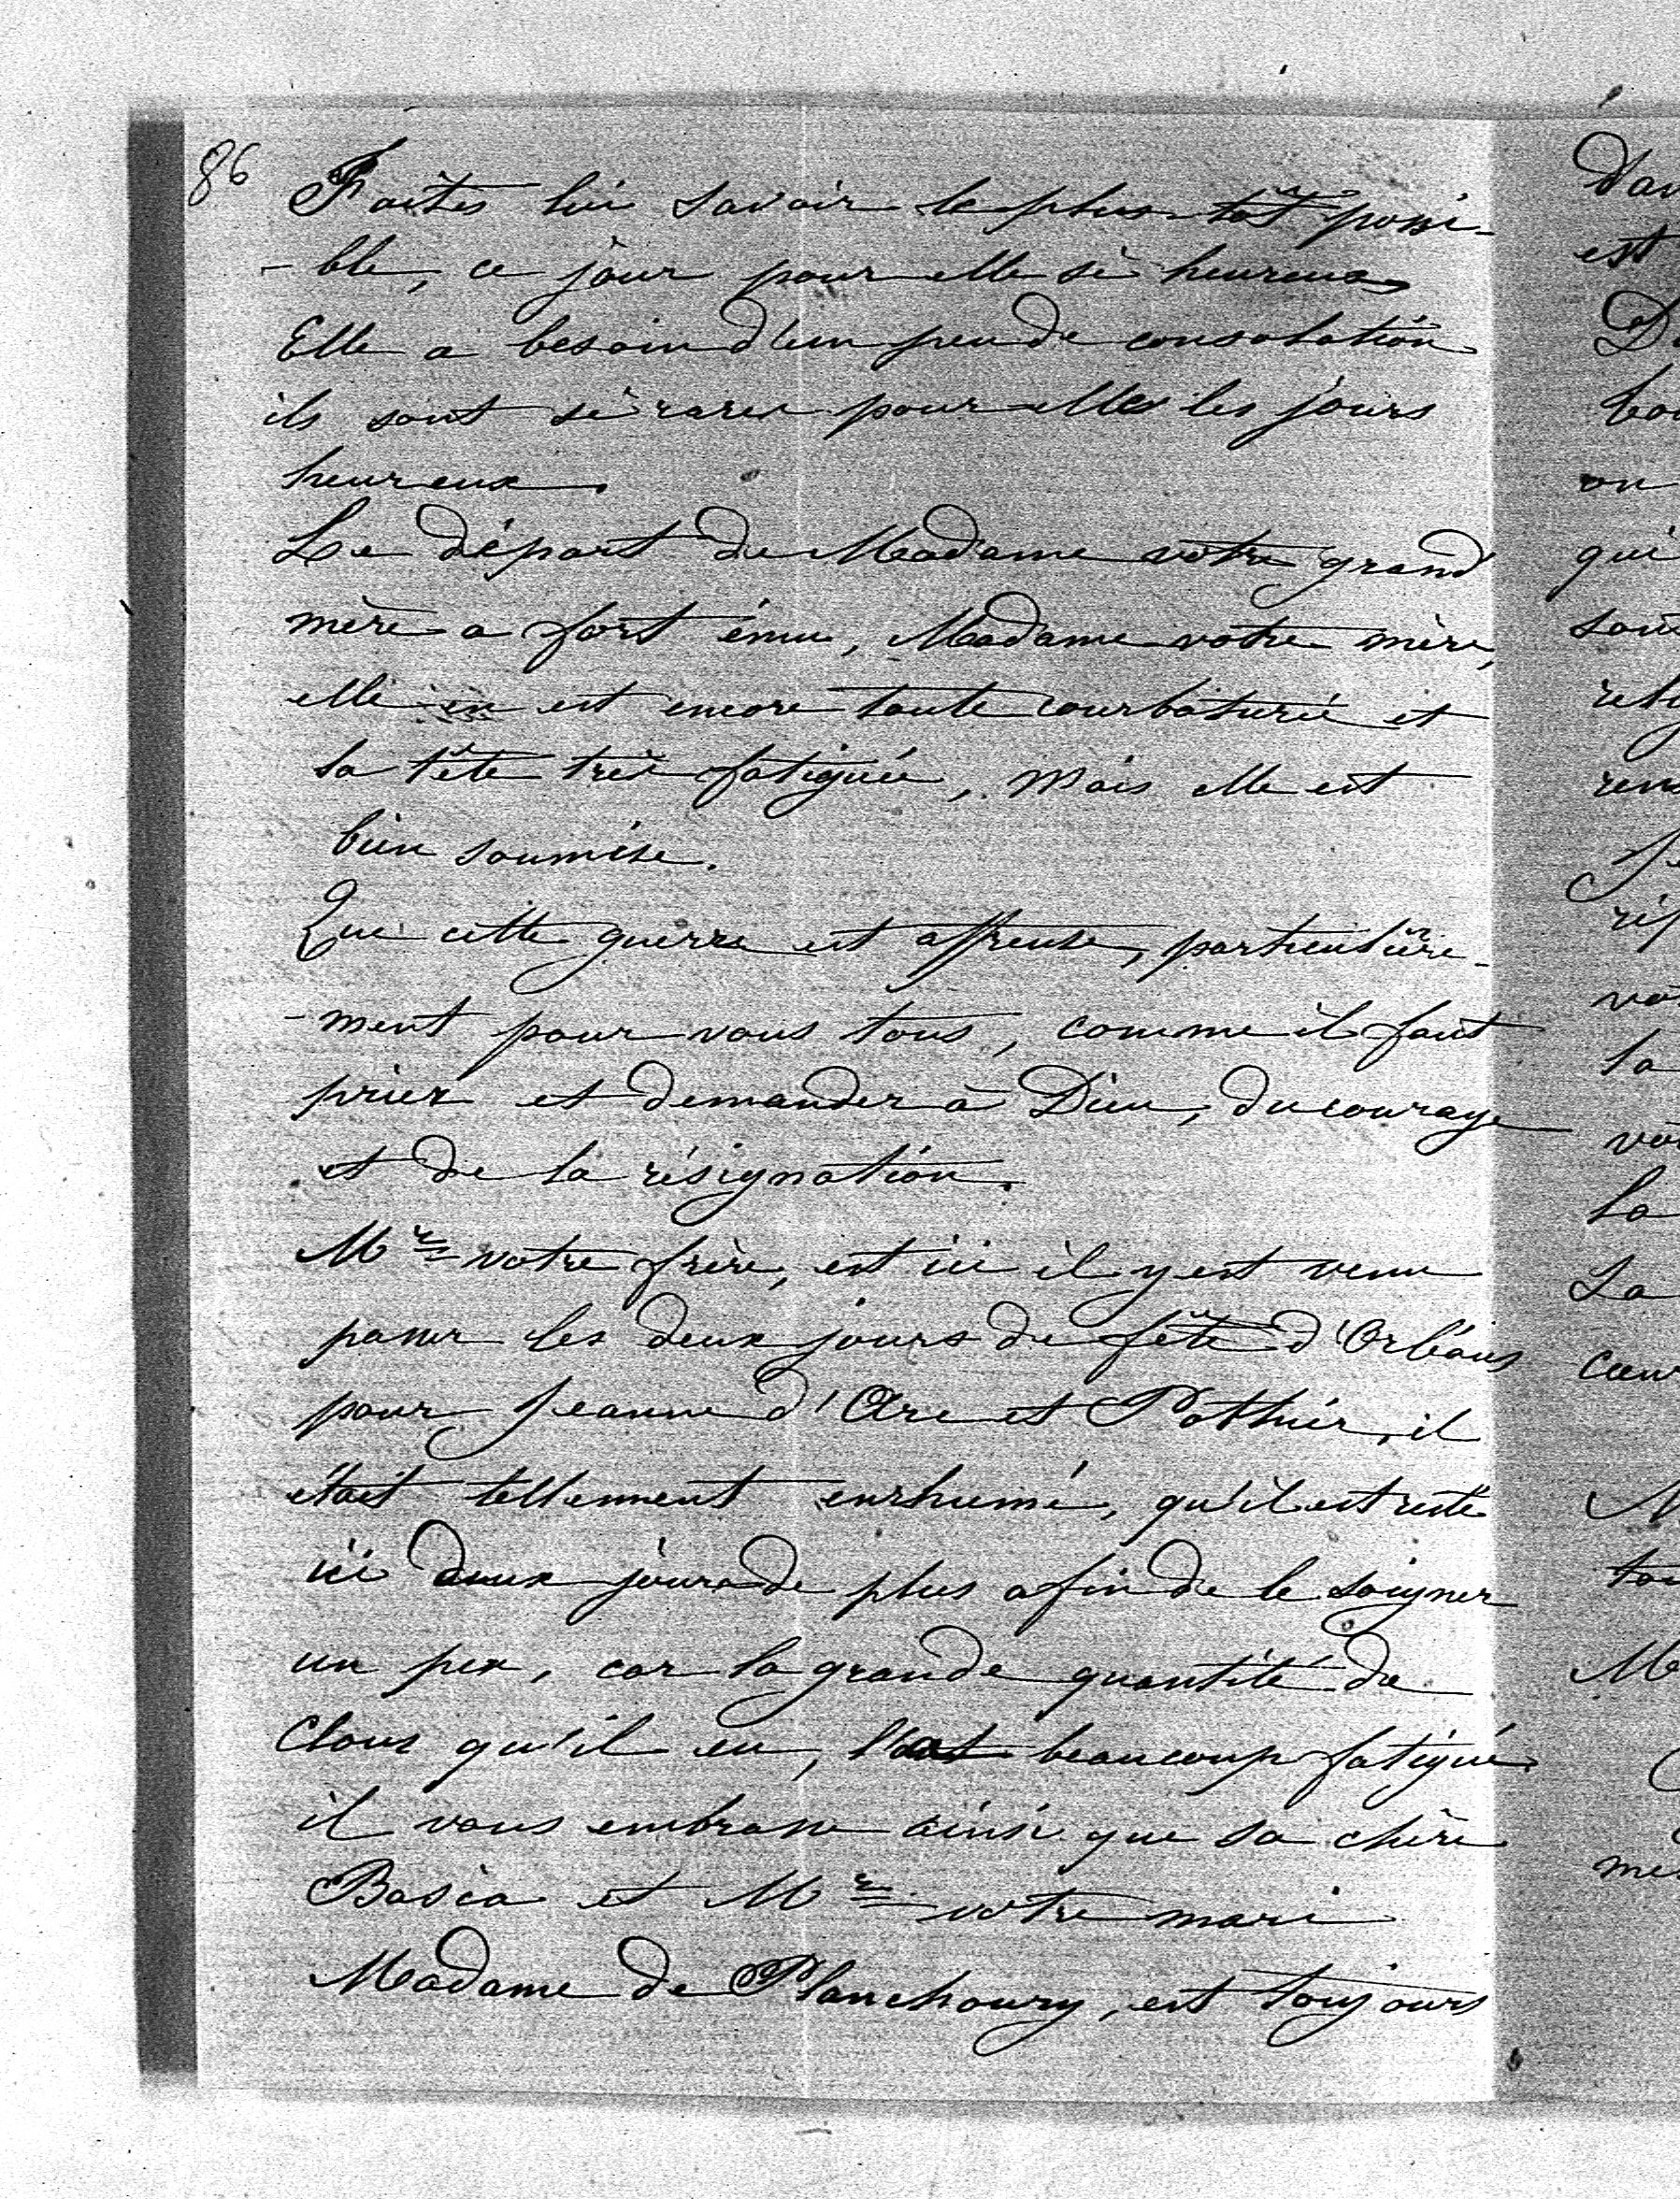 86
Faites lui savoir le plus tôt possi-
-ble, ce jour pour elle si heureux
Elle a besoin d'un peu de consolation
ils sont si rares pour elle les jours
heureux.
Le départ de Madame votre grand
mère a fort ému, Madame votre mère,
elle en est encore toute courbaturée et
la tête très fatiguée, mais elle est
bien soumise.
Que cette guerre est affreuse, particulière-
-ment pour vous tous, comme il faut
prier et demander à Dieu, du courage
et de la résignation.
Mr votre frère, est ici il y est venu
passer les deux jours de fête d'Orléans
pour Jeanne d'Arc et Pothier, il
était tellement enrhumé, qu'il est resté
ici deux jours de plus afin de le soigner
un peu, car la grande quantité de
clous qu'il eu, l'a beaucoup fatigué
il vous embrasse ainsi que sa chère
Basia et Mr votre mari
Madame de Planchoury, est toujours